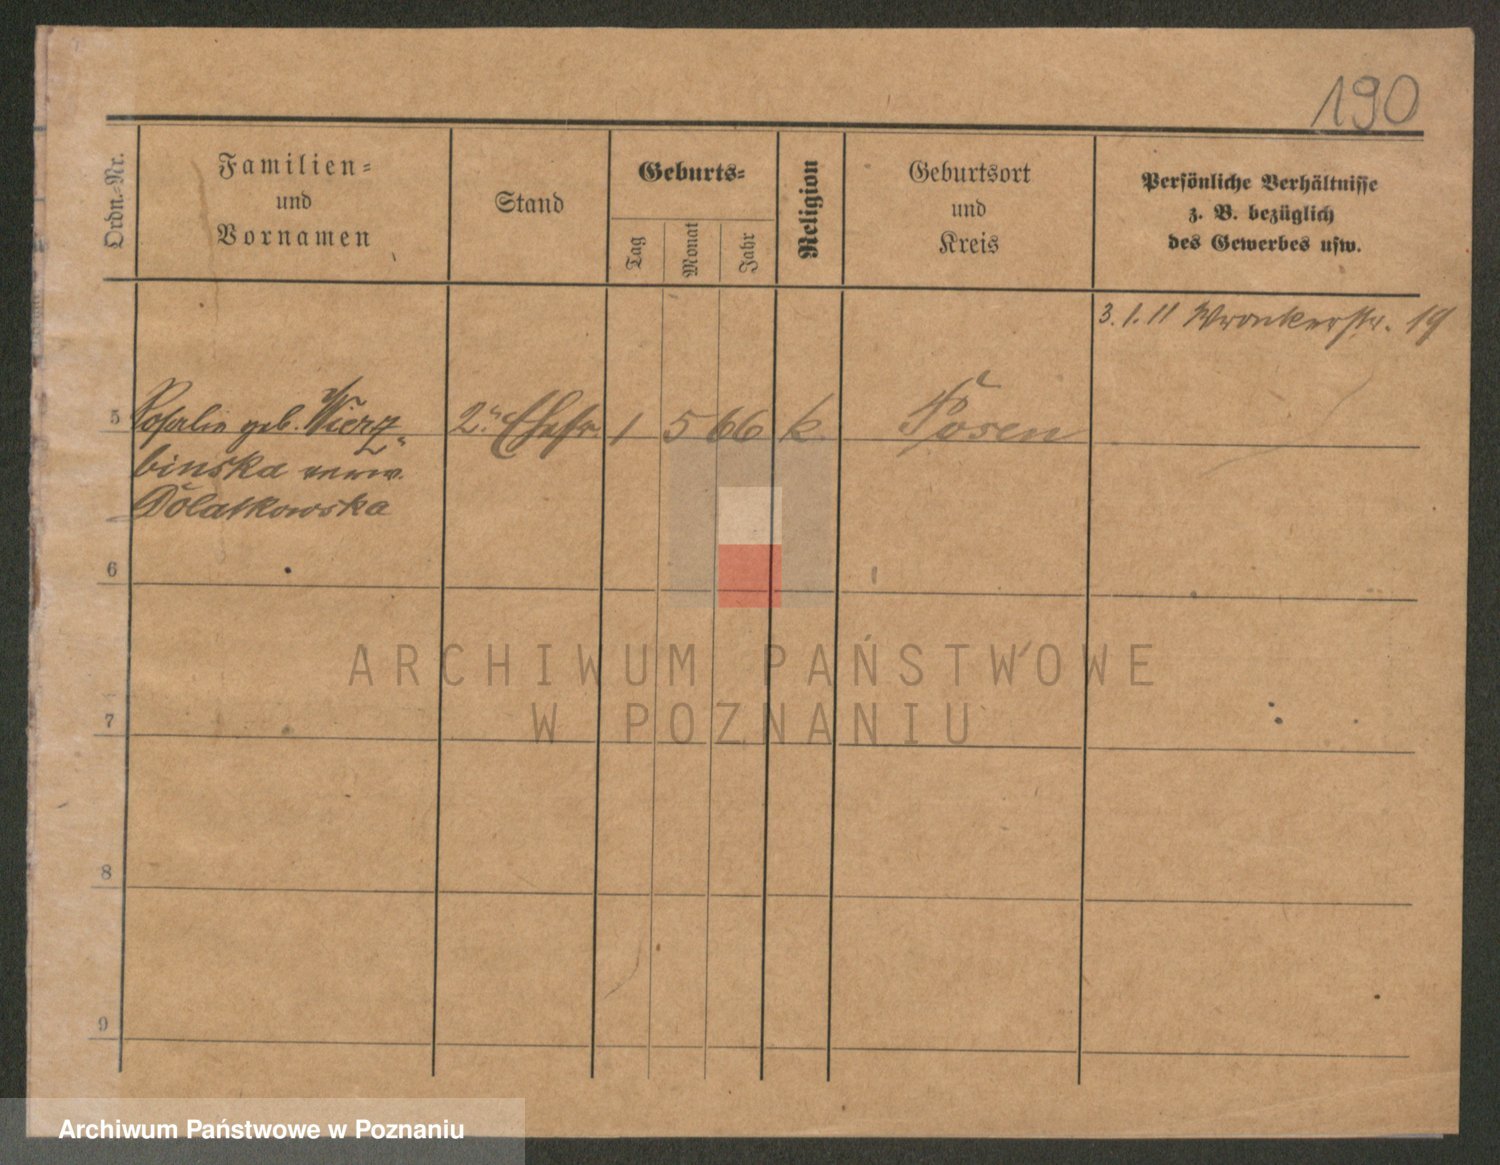 190
Ordn.-Nr.
Familien-
und
Vornamen
Stand
Geburts-
Tag
Monat
Jahr
Religion
Geburtsort
und
Kreis
Persönliche Verhältnisse
z. B. bezüglich
des Gewerbes usw.
3. 1. 11 Wronkerstr. 19
5 Rosalie geb. Wierz- 2te Ehefr. 1 5 66 k. Posen
binska verw.
Dolatkowska
6
ARCHIWUM PAŃSTWOWE
W POZNANIU
7
8
9
Archiwum Państwowe w Poznaniu